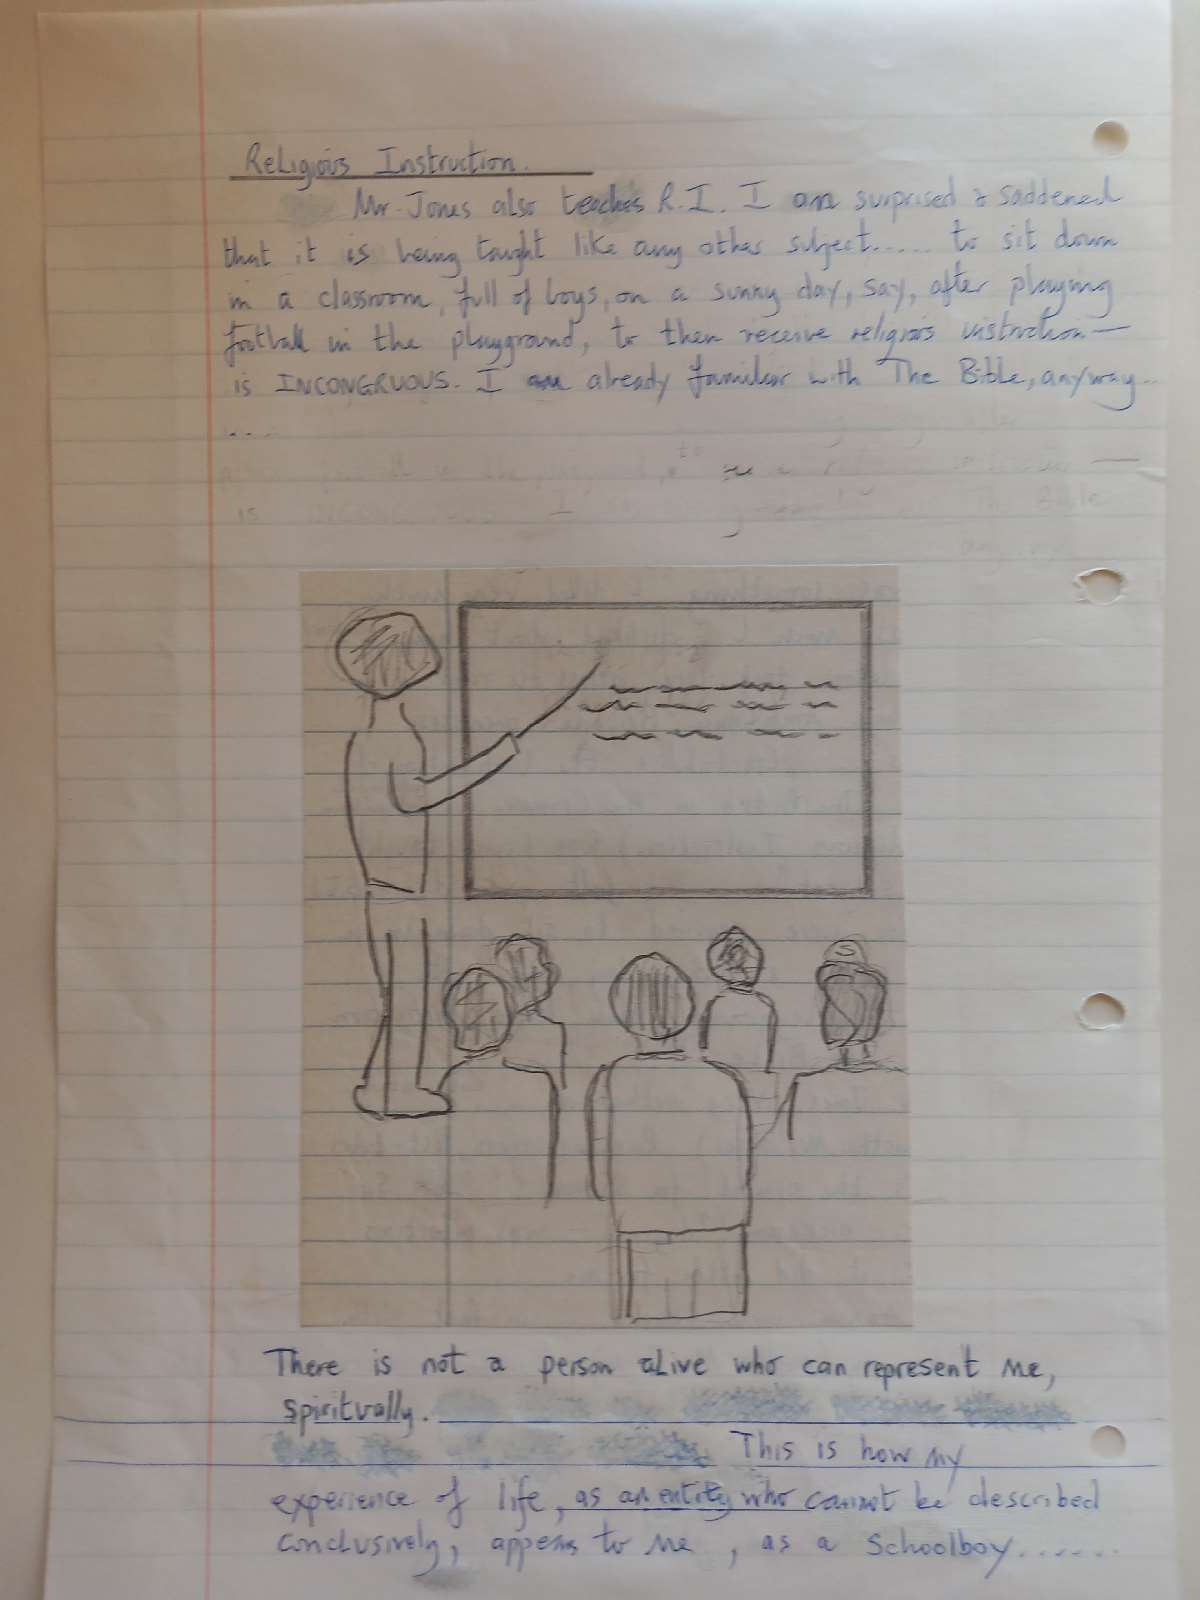 Religious Instruction.
Mr Jones also teaches R.I. I am surprised & saddened
that it is being taught like any other subject..... to sit down
in a classroom, full of boys, on a sunny day, say, after playing
football in the playground, to then receive religious instruction—
is INCONGRUOUS. I am already familiar with The Bible, anyway...
....
to
is I The Bible
There is not a person alive who can represent me,
spiritually.
This is how my
experience of life, as an entity who cannot be described
conclusively, appears to me, as a schoolboy......